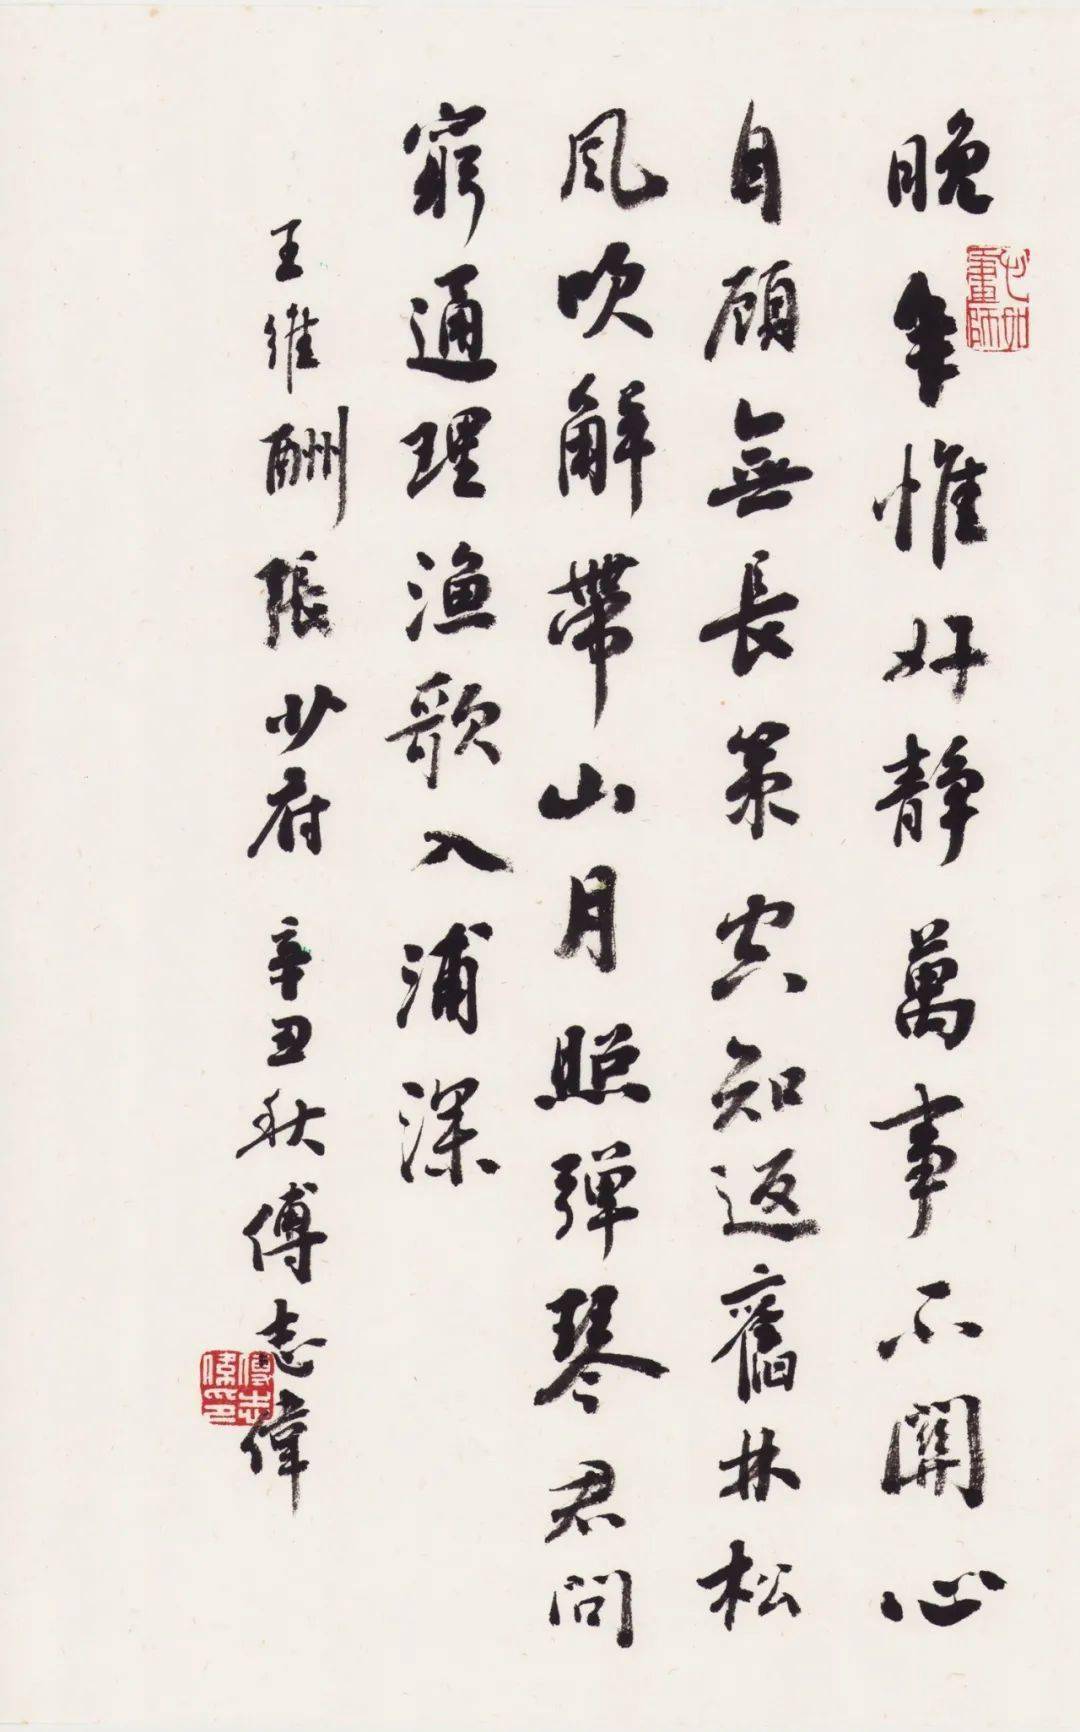 晚年惟好靜萬事不關心
自顧無長策空知返舊林松
風吹解帶山月照彈琴君問
窮通理漁歌入浦深
王維酬張少府 辛丑秋傅志偉
心如畫師
傅志偉印